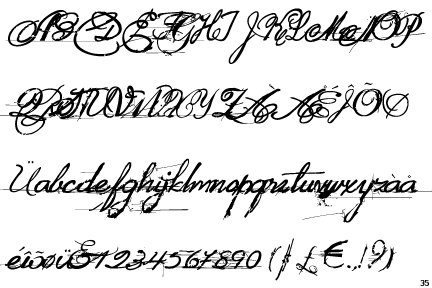 ABCDEFGHIJKLMNOP
QRSTUVWXYZÀÅÉÎÕØ
Üabcdefghijklmnopqrstuvwxyzàå
éîõøü&1234567890($£€.,!?)
35